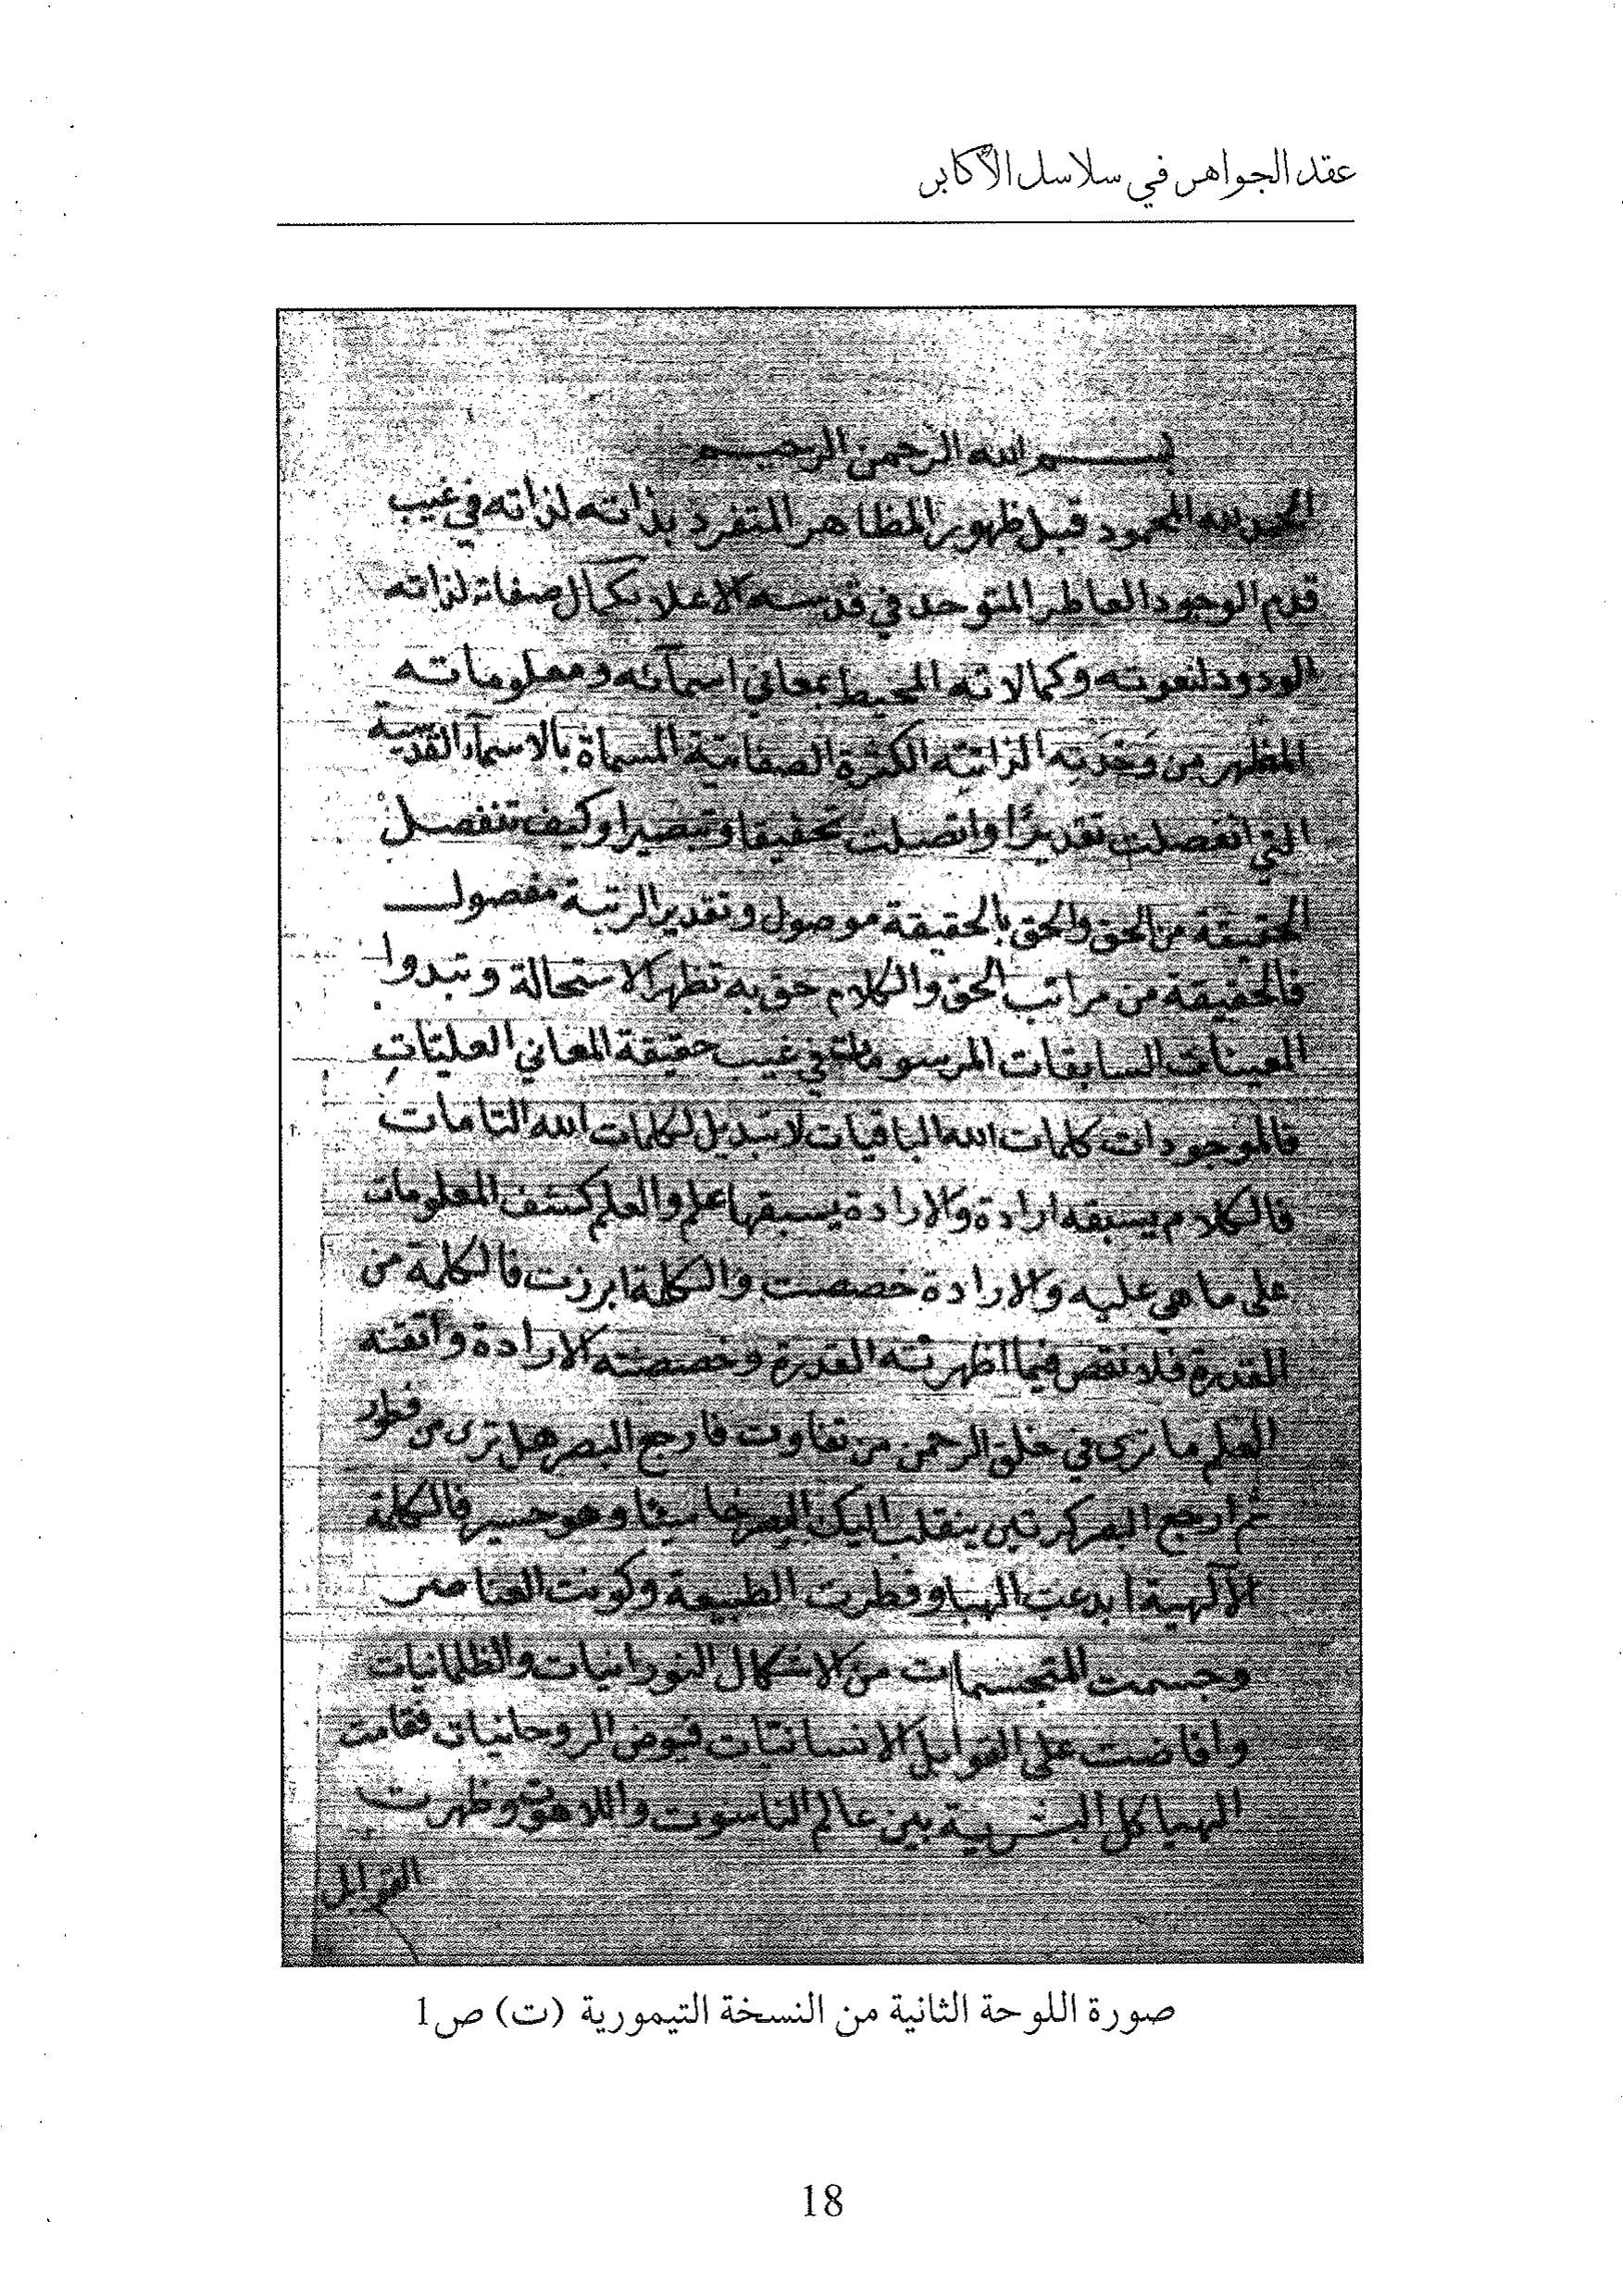 عقد الجواهر في سلاسل الأكابر
بسم الله الرحمن الرحيم
الحمد لله المحمود قبل ظهور المظاهر المتفرد بذاته لذاته في غيب
قدم الوجود العاطر المتوحد في قدسه الاعلا بكمال صفاته لذاته
الودود لنعوته وكمالاته المحيط بمعاني اسمآئه ومعلوماته
المظهر من وحدته الذاتية الكثرة الصفاتية المسماة بالاسمآء القدسية
التي انفصلت تقديرًا واتصلت تحقيقا وتبصيرا وكيف تنفصل
الحقيقة من الحق والحق بالحقيقة موصول وتقدير الرتبة مفصول
فالحقيقة من مراتب الحق والكلام حق به تظهر الاستحالة وتبدوا
العينات السابقات المرسومات في غيب حقيقة المعاني العليّات
فالموجودات كلمات الله الباقيات لا تبديل لكلمات الله التامات
فالكلام يسبقه ارادة والارادة يسبقها علم والعلم كشف المعلومات
على ما هي عليه والارادة خصصت والكلمة ابرزت فالكلمة من
القدرة فلا نقص فيما اظهرته القدرة وخصصته الارادة واتقنه
العلم ما ترى في خلق الرحمن من تفاوت فارجع البصر هل ترى من فطور
ثم ارجع البصر كرتين ينقلب اليك البصر خاسئا وهو حسير فالكلمة
الآلهية ابدعت الهبا وفطرت الطبيعة وكونت العناصر
وجسمت المتجسمات من الاشكال النورانيات والظلمانيات
وافاضت على القوابل الانسانيات فيوض الروحانيات فقامت
الهياكل البشرية بين عالم الناسوت واللاهوت وظهرت
القوابل
صورة اللوحة الثانية من النسخة التيمورية (ت) ص1
18